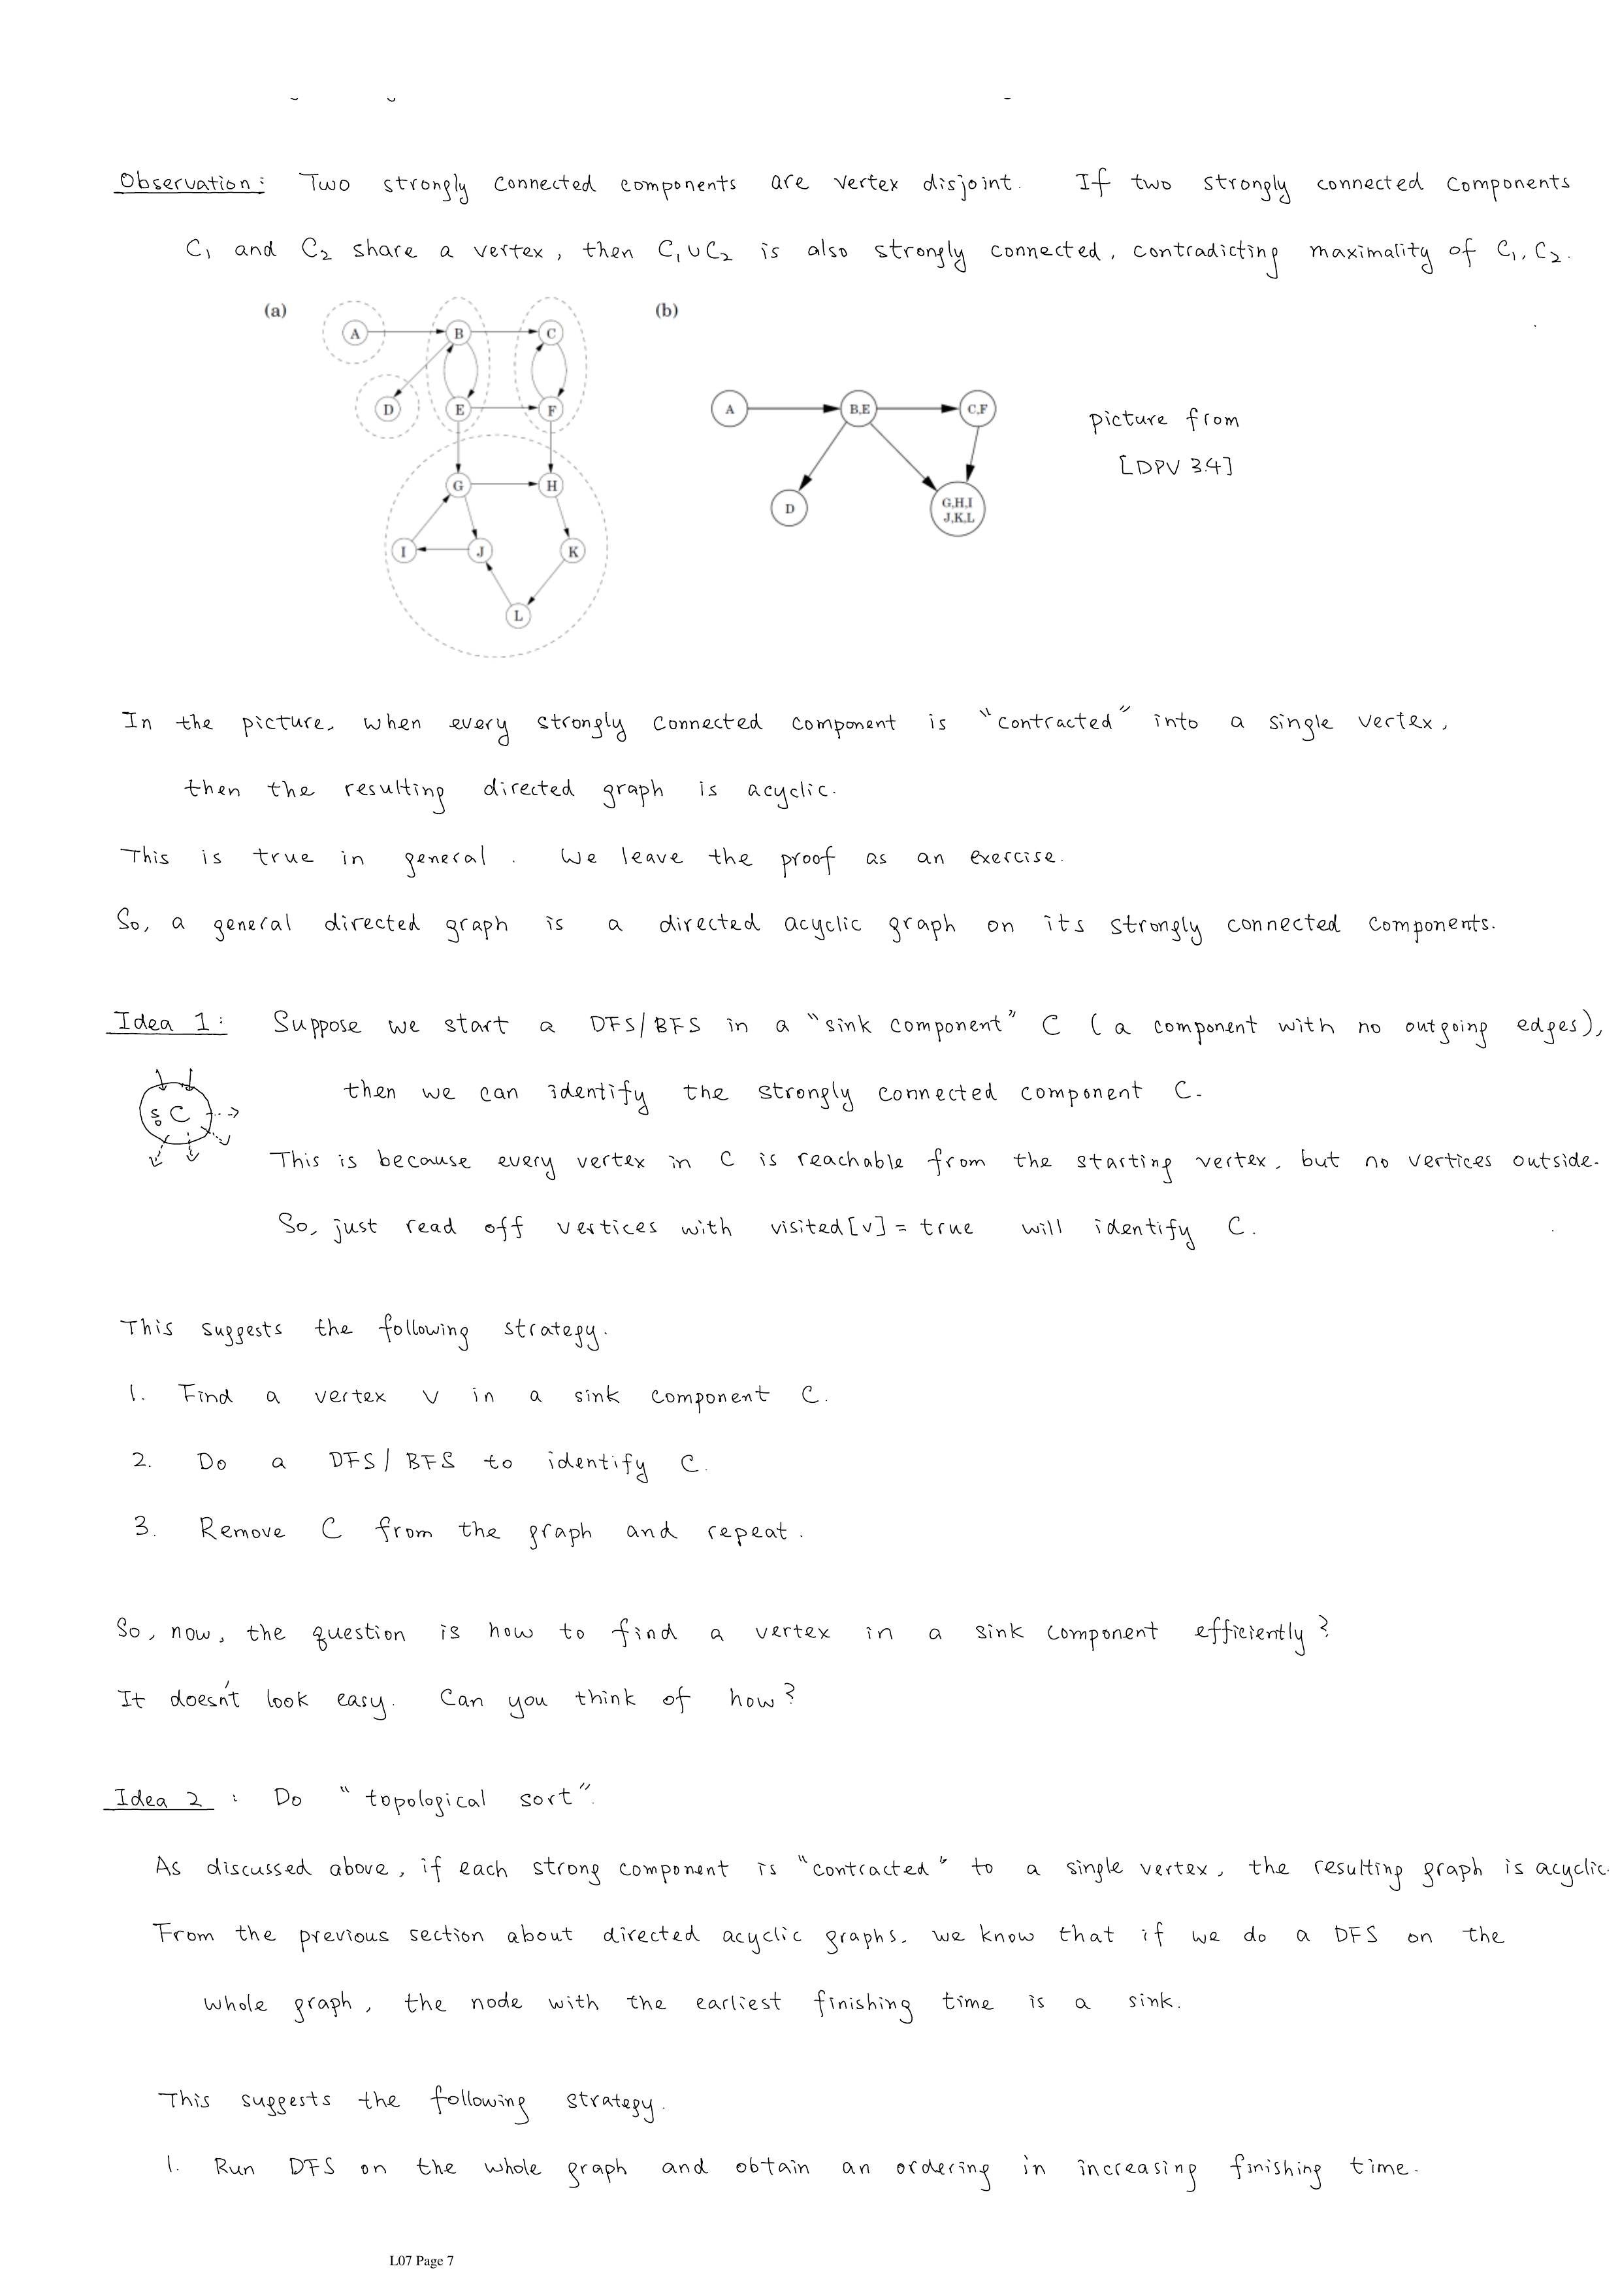 Observation: Two strongly connected components are vertex disjoint. If two strongly connected components
C₁ and C₂ share a vertex, then C₁∪C₂ is also strongly connected, contradicting maximality of C₁, C₂.
(a) (b)
A B C
D E F
G H
I J K
L
A B,E C,F
D G,H,I
J,K,L
picture from
[DPV 3.4]
In the picture, when every strongly connected component is "contracted" into a single vertex,
then the resulting directed graph is acyclic.
This is true in general. We leave the proof as an exercise.
So, a general directed graph is a directed acyclic graph on its strongly connected components.
Idea 1: Suppose we start a DFS/BFS in a "sink component" C (a component with no outgoing edges),
then we can identify the strongly connected component C.
C
This is because every vertex in C is reachable from the starting vertex, but no vertices outside.
So, just read off vertices with visited[v] = true will identify C.
This suggests the following strategy.
1. Find a vertex v in a sink component C.
2. Do a DFS/BFS to identify C.
3. Remove C from the graph and repeat.
So, now, the question is how to find a vertex in a sink component efficiently?
It doesn't look easy. Can you think of how?
Idea 2: Do "topological sort".
As discussed above, if each strong component is "contracted" to a single vertex, the resulting graph is acyclic.
From the previous section about directed acyclic graphs, we know that if we do a DFS on the
whole graph, the node with the earliest finishing time is a sink.
This suggests the following strategy.
1. Run DFS on the whole graph and obtain an ordering in increasing finishing time.
L07 Page 7